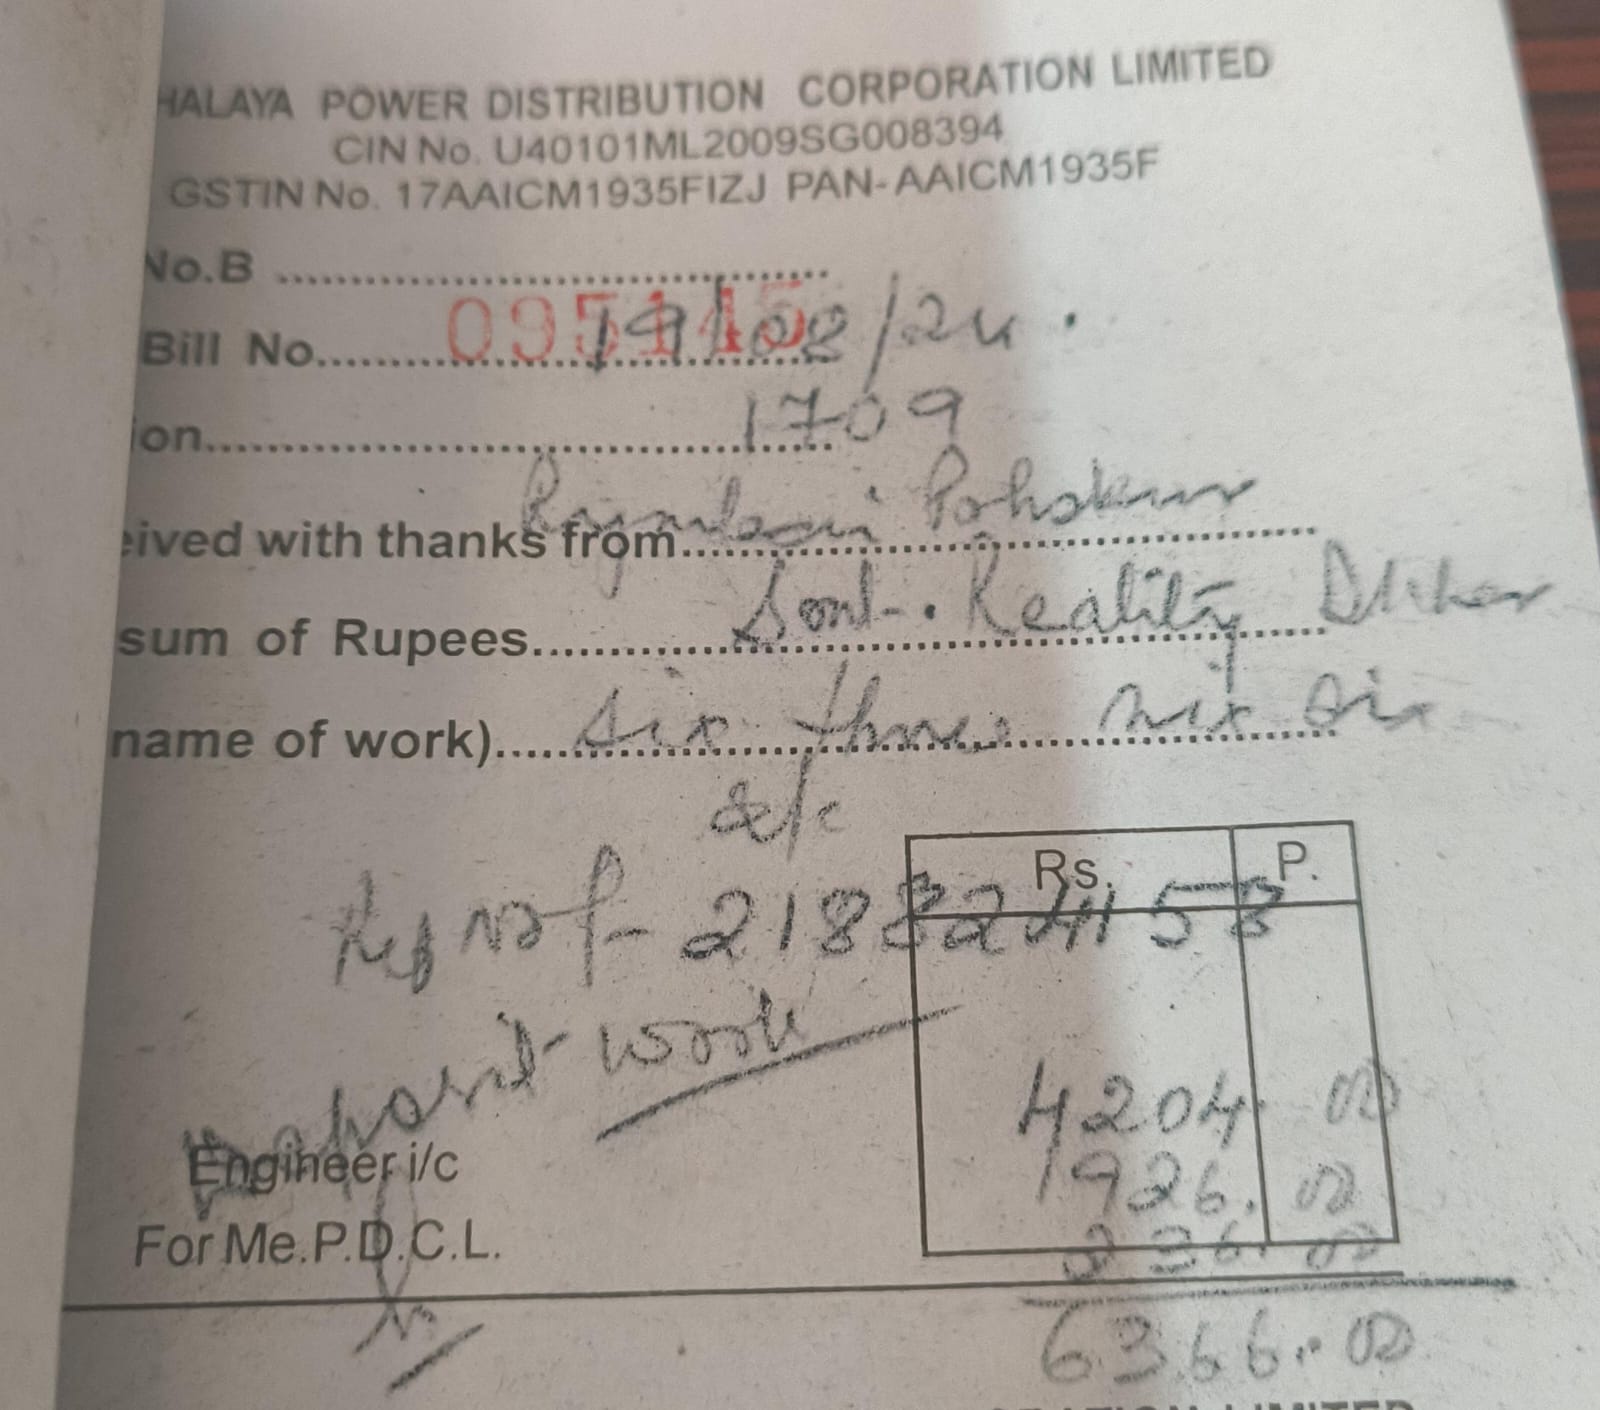 HALAYA POWER DISTRIBUTION CORPORATION LIMITED
CIN No. U40101ML2009SG008394
GSTIN No. 17AAICM1935FIZJ PAN-AAICM1935F
No.B ..............................
095145
Bill No.............................. 19/02/24.
ion.............................. 1709
eived with thanks from..............................
sum of Rupees.............................. Smt. Reality Dkhar
name of work).............................. six three six six
a/c
Rs. P.
Ref No 218324158
Deposit work
4204 00
Engineer i/c
1926. 00
For Me.P.D.C.L. 236. 00
6366.00